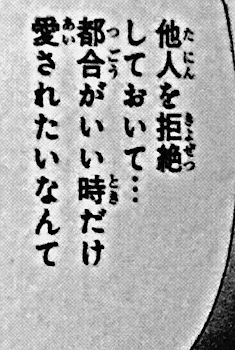 他人を拒絶
しておいて…
都合がいい時だけ
愛されたいなんて